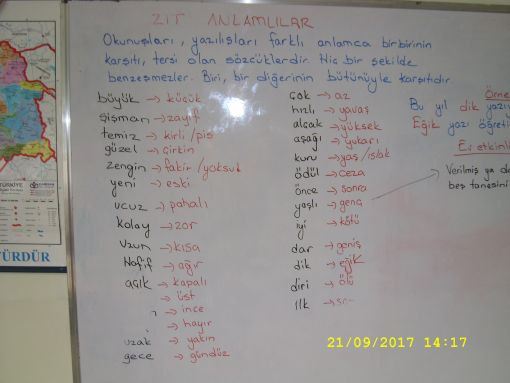 ZIT ANLAMLILAR
Okunuşları, yazılışları farklı anlamca birbirinin
karşıtı, tersi olan sözcüklerdir. Hiç bir şekilde
benzeşmezler. Biri, bir diğerinin bütünüyle karşıtıdır.
büyük → küçük
şişman → zayıf
temiz → kirli/pis
güzel → çirkin
zengin → fakir/yoksul
yeni → eski
ucuz → pahalı
kolay → zor
uzun → kısa
Hafif → ağır
açık → kapalı
→ üst
→ ince
→ hayır
uzak → yakın
gece → gündüz
çok → az
hızlı → yavaş
alçak → yüksek
aşağı → yukarı
kuru → yaş/ıslak
ödül → ceza
önce → sonra
yaşlı → genç
iyi → kötü
dar → geniş
dik → eğik
diri → ölü
İlk →
Örne
Bu yıl dik yazıy
Eğik yazı öğreti
Ev etkinli
Verilmiş ya da
beş tanesini
TÜRKİYE
TÜRDÜR
21/09/2017 14:17